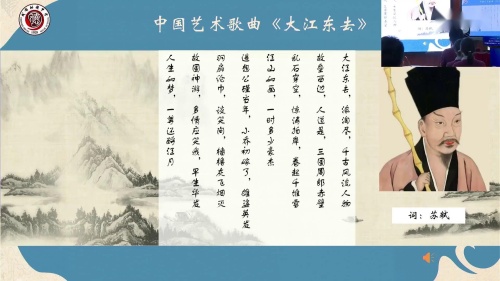 中国艺术歌曲《大江东去》
大江东去，浪淘尽，千古风流人物
故垒西边，人道是，三国周郎赤壁
乱石穿空，惊涛拍岸，卷起千堆雪
江山如画，一时多少豪杰
遥想公瑾当年，小乔初嫁了，雄姿英发
羽扇纶巾，谈笑间，樯橹灰飞烟灭
故国神游，多情应笑我，早生华发
人生如梦，一尊还酹江月
词：苏轼